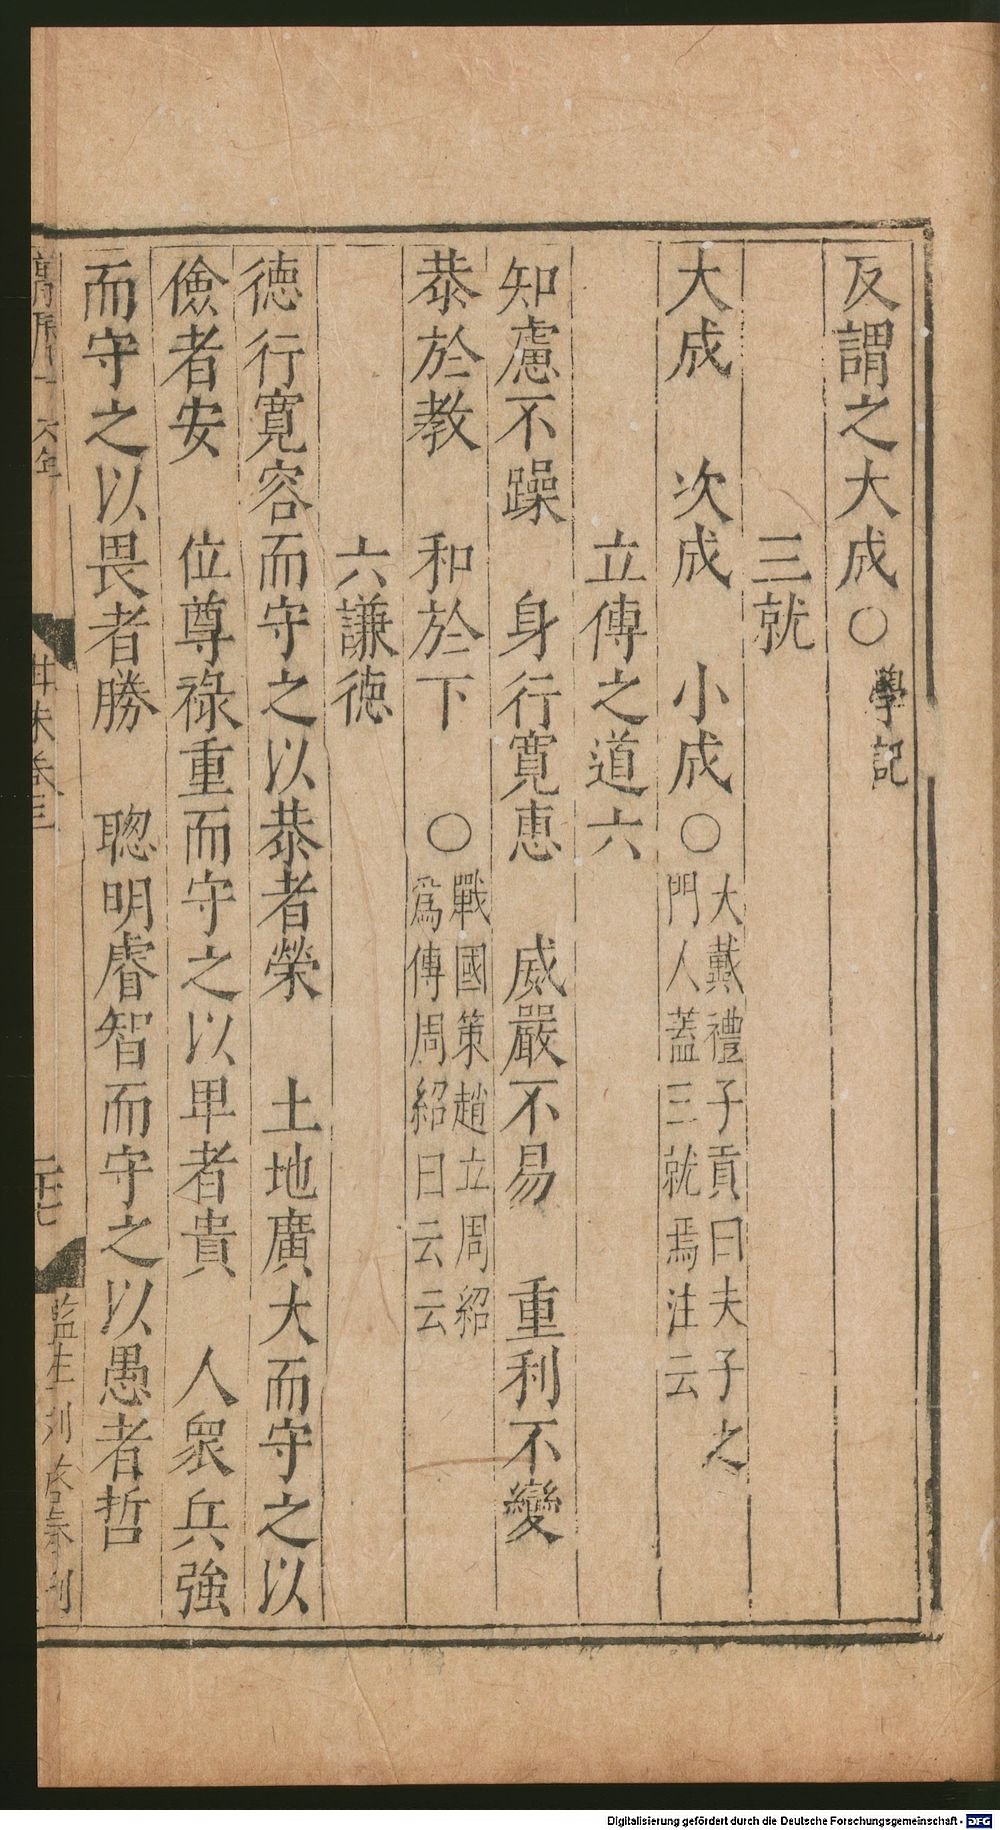 反謂之大成○學記
三就
大成　次成　小成○大戴禮子貢曰夫子之
門人蓋三就焉注云
立傳之道六
知慮不躁　身行寬惠　威嚴不易　重利不變
恭於教　和於下　○戰國策趙立周紹
爲傳周紹曰云云
六謙德
德行寬容而守之以恭者榮　土地廣大而守之以
儉者安　位尊祿重而守之以卑者貴　人衆兵強
而守之以畏者勝　聰明睿智而守之以愚者哲
萬曆十六年
卷三
監生劉
Digitalisierung gefördert durch die Deutsche Forschungsgemeinschaft - DFG